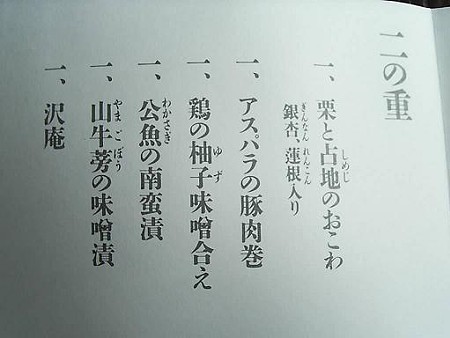 二の重
一、栗と占地のおこわ
銀杏、蓮根入り
一、アスパラの豚肉巻
一、鶏の柚子味噌合え
一、公魚の南蛮漬
一、山牛蒡の味噌漬
一、沢庵